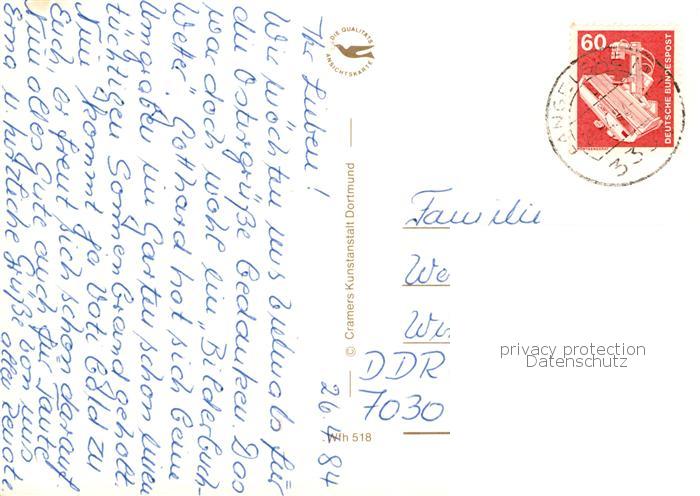 26.4.84
Ihr Lieben!
Wir möchten uns vilmals für
die Ostergrüße bedanken. Das
war doch wohl ein "Bilderbuch-
Wetter". Gothard hat sich beim
Umgraben im Garten schon einen
tüchtigen Sonnenbrand geholt.
Nun kommt ja Vati bald zu
Euch, er freut sich schon darauf.
Nun alles Gute auch für Tante
Erna u. herzliche Grüße von uns
allen Renate
DIE QUALITÄTS
ANSICHTSKARTE
© Cramers Kunstanstalt Dortmund
Wfh 518
60
DEUTSCHE BUNDESPOST
33
Familie
We
DDR
7030
privacy protection
Datenschutz